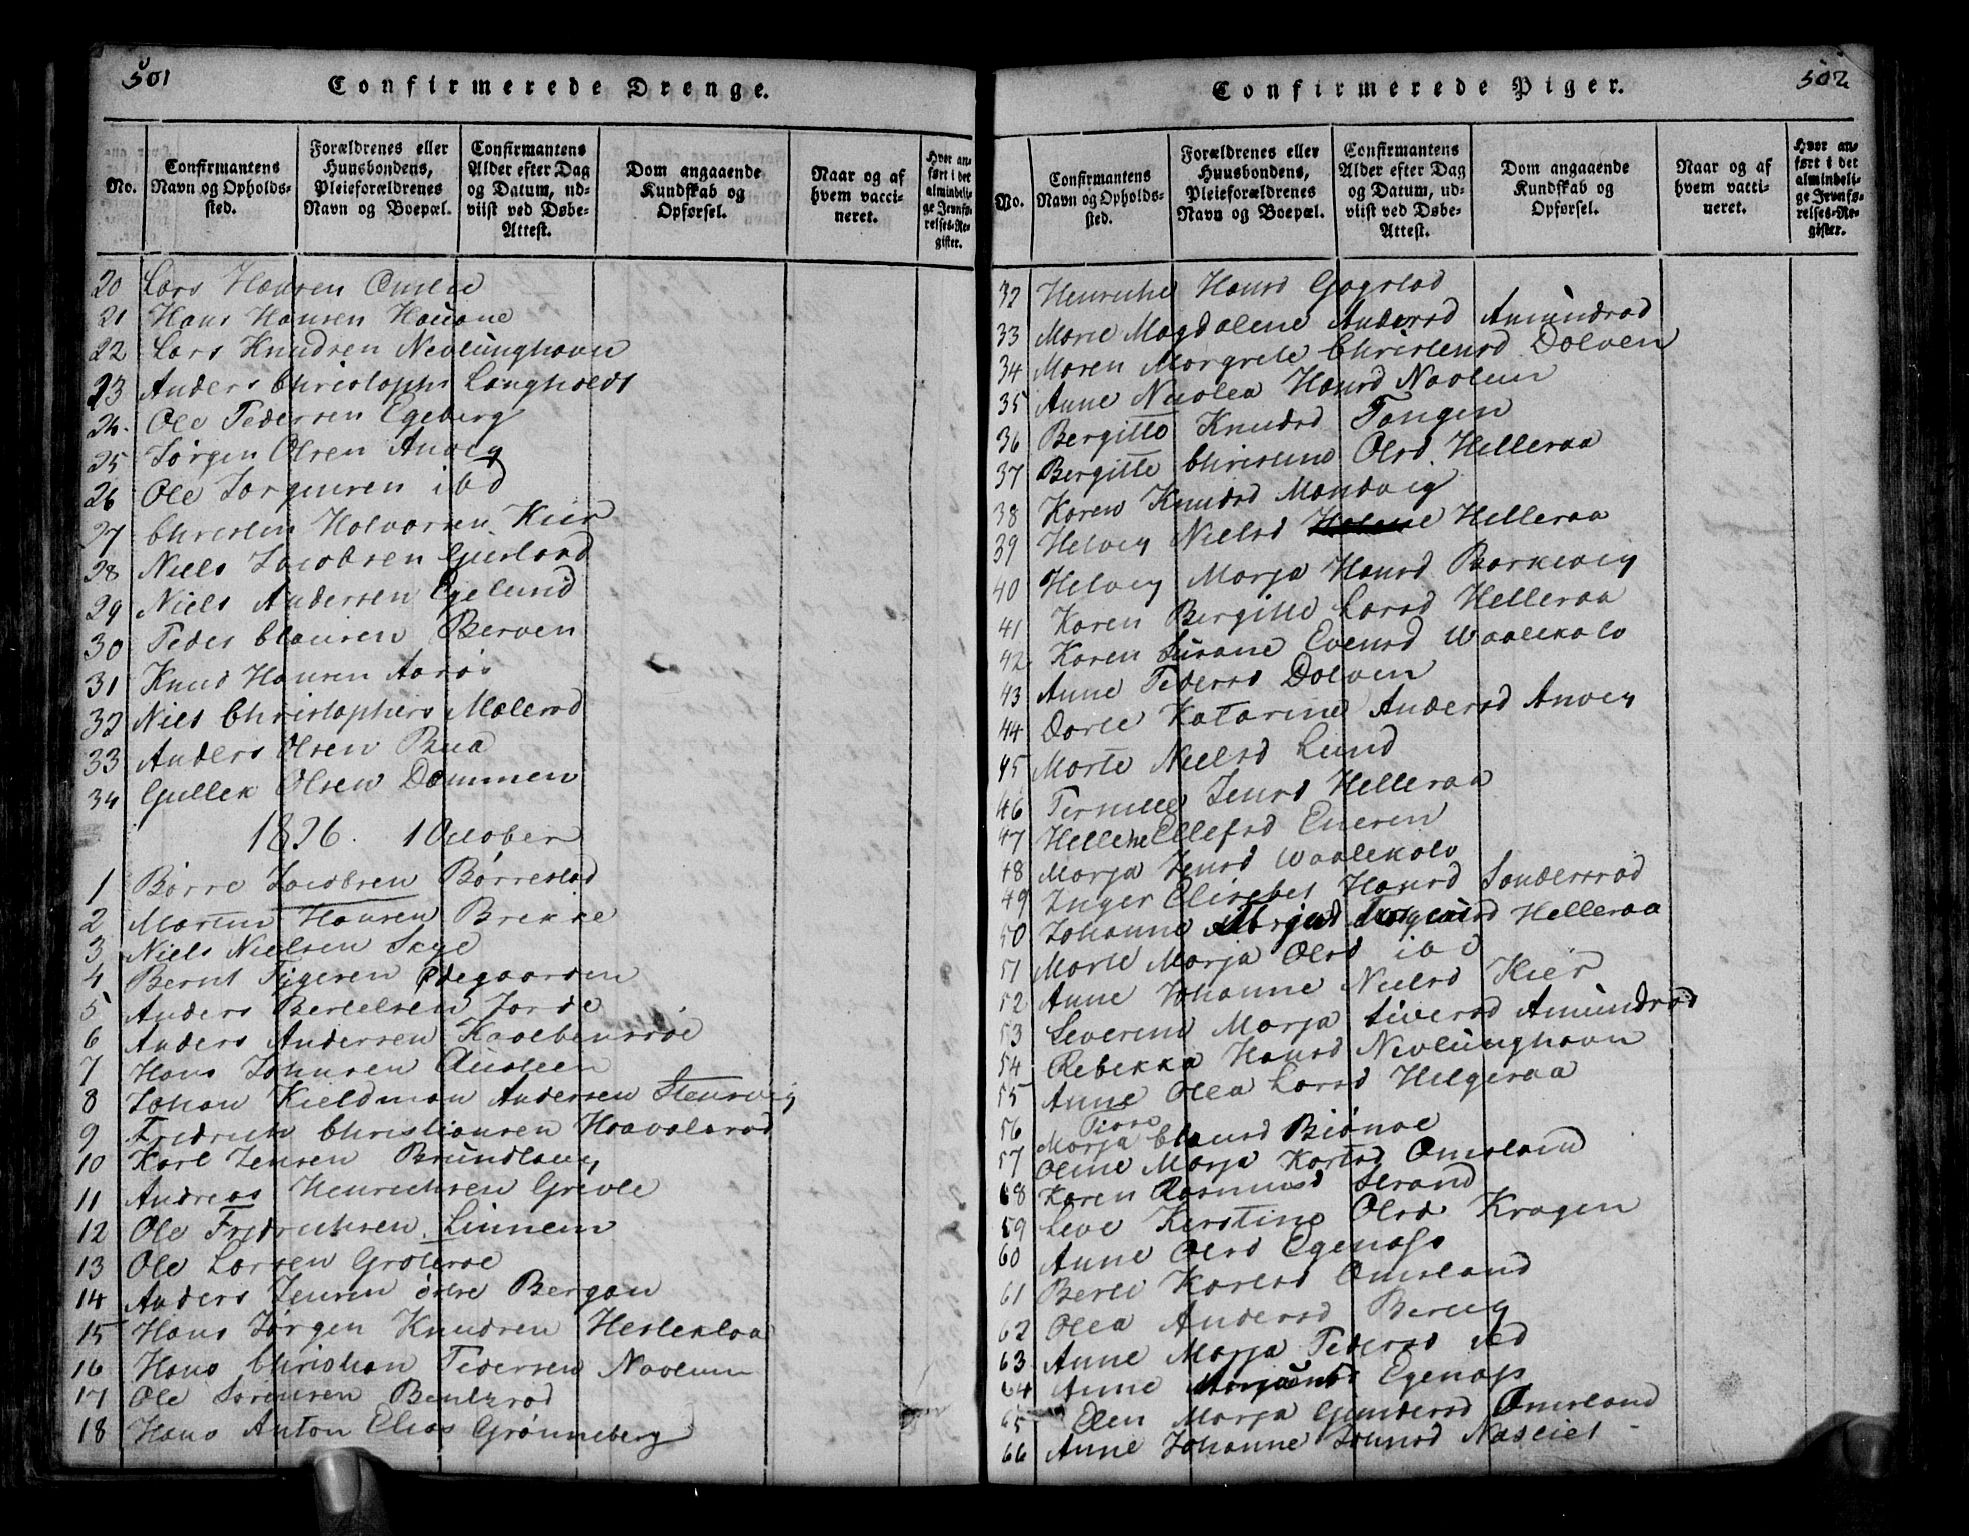 501
Confirmerede Drenge.
No.
Confirmantens
Navn og Opholds-
sted.
Forældrenes eller
Huusbondens,
Pleieforældrenes
Navn og Boepæl.
Confirmantens
Alder efter Dag
og Datum, ud-
viist ved Døbe-
Attest.
Dom angaaende
Kundskab og
Opførsel.
Naar og af
hvem vacci-
neret.
Hvor an-
ført i det
almindeli-
ge Jevnfø-
relses-Re-
gister.
20 Lars Hansen Omsee
21 Hans Hansen Hauane
22 Lars Knudsen Nevlunghavn
23 Anders Christophs Langholdt
24. Ole Pedersen Egeberg
25 Jørgen Olsen Anveg
26 Ole Jørgensen ibd
27 Christen Halvorsen Kier
28 Niels Jacobsen Gierstad
29 Niels Andersen Egelund
30 Peder Clausen Berven
31 Knud Hansen Aarøs
32 Niels Christophers Melerød
33 Anders Olsen Bua
34 Gullek Olsen Dammen
1826. 1 October
1 Børre Jacobsen Børrestad
2 Martin Hansen Brekke
3 Niels Nielsen Skye
4 Bernt Tygesen Ødegaarden
5 Anders Bertelsen Jorde
6 Anders Andersen Kaalbensrøe
7 Hans Johnsen Austeen
8 Johan Kieldman Andersen Stensvig
9 Fredrich Christiansen Haavalsrød
10 Karl Jensen Brundlaug
11 Andreas Henrichsen Grevle
12 Ole Fredrichsen Linnem
13 Ole Larsen Grøterøe
14 Anders Jensen østre Bergan
15 Hans Jørgen Knudsen Hesleklaa
16 Hans Christian Pedersen Navlum
17 Ole Sørensen Bentsrød
18 Hans Anton Elias Grønneberg
502
Confirmerede Piger.
No.
Confirmantens
Navn og Opholds-
sted.
Forældrenes eller
Huusbondens,
Pleieforældrenes
Navn og Boepæl.
Confirmantens
Alder efter Dag
og Datum, ud-
viist ved Døbe-
Attest.
Dom angaaende
Kundskab og
Opførsel.
Naar og af
hvem vacci-
neret.
Hvor an-
ført i det
almindeli-
ge Jevnfø-
relses-Re-
gister.
32 Henriche Hansd Gogstad
33 Marie Magdalene Andersd Amundrød
34 Maren Margrete Christensd Dolven
35 Anne Nicolea Hansd Navlum
36 Bergitte Knudsd Tangen
37 Bergitte Christine Olsd Helleraa
38 Karen Knudsd Mandvig
39 Helvig Nielsd Helleraa
40 Helvig Marja Hansd Barkevig
41 Karen Bergitte Larsd Helleraa
42 Karen Susane Evensd Waalekalv
43 Anne Pedersd Dolven
44 Dorte Katarine Andersd Anveg
45 Marte Nielsd Lund
46 Pernille Jensd Helleraa
47 Hellene Ellefsd Eneren
48 Marja Jensd Waalekalv
49 Inger Elisebet Hansd Sandersrød
50 Johanne Helleraa
51 Marte Marja Olsd ibd
52 Anne Johanne Nielsd Kier
53 Severine Marja Siversd Amundrød
54 Rebekka Hansd Nevlunghavn
55 Anne Olea Larsd Helgeraa
56 Marja Clausd Biønæe
57 Oline Marja Karlsd Omsland
68 Karen Rasmusd Strand
59 Live Kirstine Olsd Kragen
60 Anne Olsd Egenæss
61 Berte Karlsd Omsland
62 Olea Andersd Berug
63 Anne Marja Pedersd
64 Anne Egenæss
65 Elen Marja Gundersd Omsland
66 Anne Johanne Johnsd Nasciet